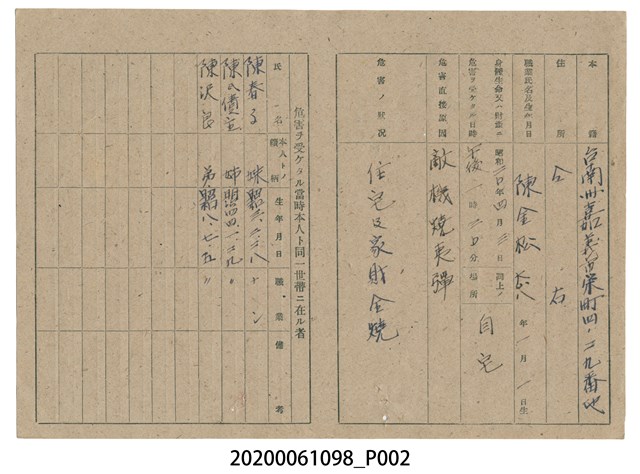 本籍 台南州嘉義市栄町四ノ二九番地
住所 仝右
職業氏名及生年月日 陳金松 年一月一日生
身體生命又ハ財產ニ危害ヲ受ケタル日時 昭和二〇年四月三日午後一時二〇分 同上ノ場所 自宅
危害直接原因 敵機燒夷彈
危害ノ狀況 住宅及家財全燒
危害ヲ受ケタル當時本人ト同一世帶ニ在ル者
氏名 本人トノ續柄 生年月日 職業 備考
陳春子 妹 昭
陳氏債 姉 明四四、一、二九
陳沢 弟 昭八、七、五
20200061098_P002